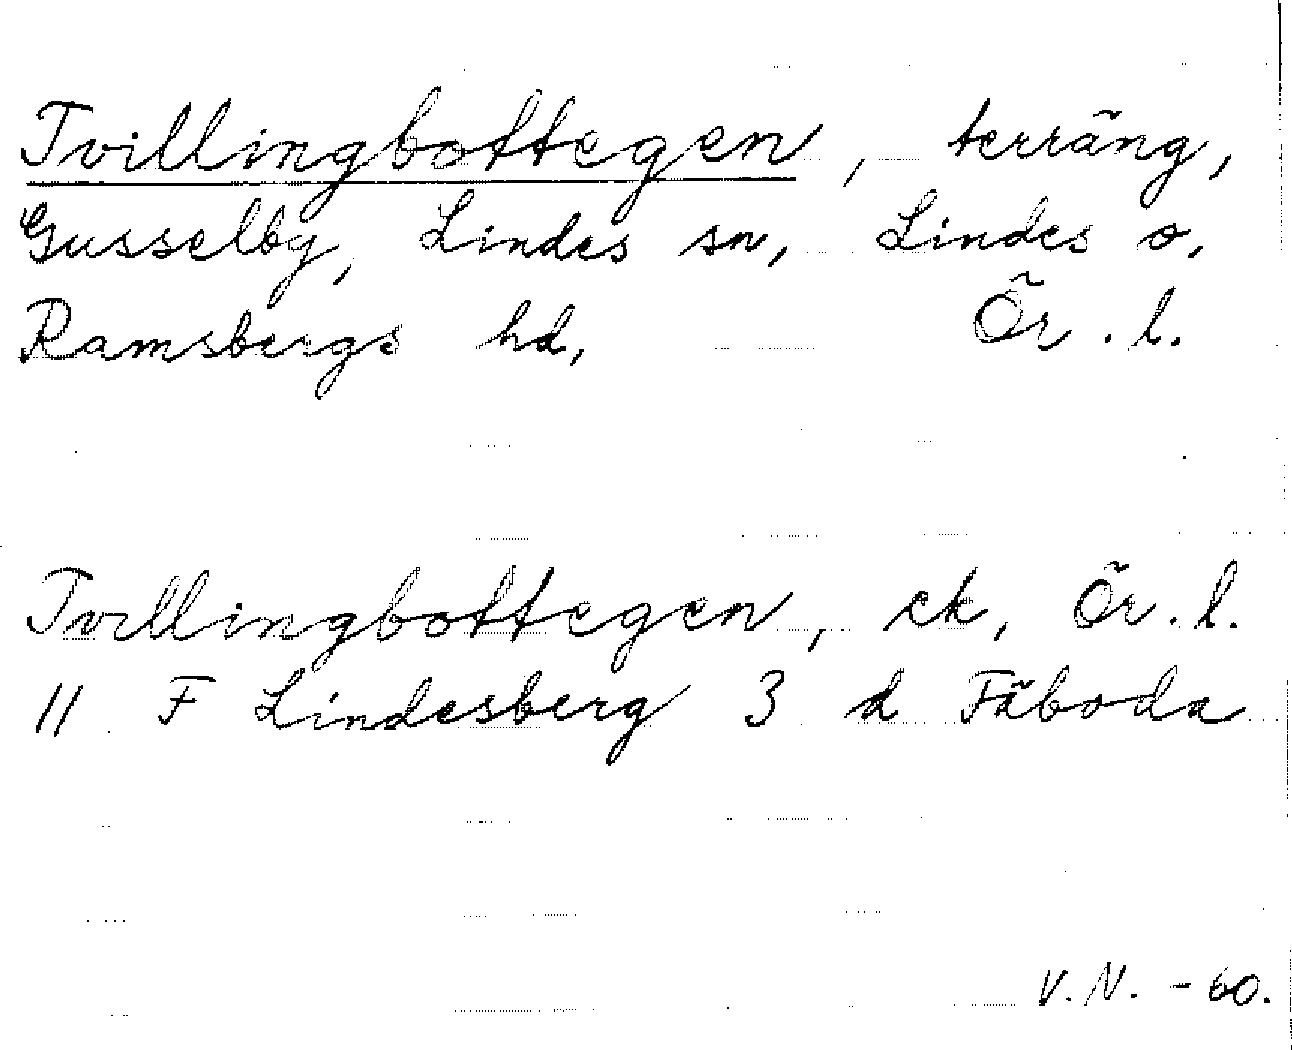 Tvillingbottegen, terräng,
Gusselby, Lindes sn, Lindes o.
Ramsbergs hd, Ör. l.
Tvillingbottegen, ek, Ör. l.
11 F Lindesberg 3 d Fäboda
V.N. -60.